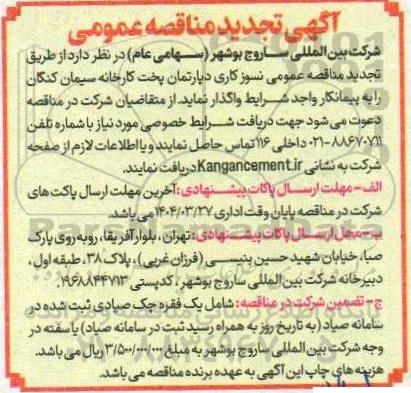 آگهی تجدید مناقصه عمومی
شرکت بین‌المللی ساروج بوشهر (سهامی عام) در نظر دارد از طریق
تجدید مناقصه عمومی نسوز کاری دپارتمان پخت کارخانه سیمان کنگان
را به پیمانکار واجد شرایط واگذار نماید. از متقاضیان شرکت در مناقصه
دعوت می شود جهت دریافت شرایط خصوصی مورد نیاز با شماره تلفن
۸۸۶۷۰۷۱۱-۰۲۱ داخلی ۱۱۶ تماس حاصل نمایند و یا اطلاعات لازم از صفحه
شرکت به نشانی Kangancement.ir دریافت نمایند.
الف- مهلت ارسال پاکات پیشنهادی: آخرین مهلت ارسال پاکت های
شرکت در مناقصه پایان وقت اداری ۱۴۰۴/۰۳/۲۷ می باشد.
ب- محل ارسال پاکات پیشنهادی: تهران، بلوار آفریقا، روبه روی پارک
صبا، خیابان شهید حسین پنبسی (فرزان غربی)، پلاک ۳۸، طبقه اول،
دبیرخانه شرکت بین المللی ساروج بوشهر، کدپستی ۱۹۶۸۸۴۴۷۱۳.
ج- تضمین شرکت در مناقصه: شامل یک فقره چک صیادی ثبت شده در
سامانه صیاد (به تاریخ روز به همراه رسید ثبت در سامانه صیاد) یا سفته در
وجه شرکت بین المللی ساروج بوشهر به مبلغ ۳/۵۰۰/۰۰۰/۰۰۰ ریال می باشد.
هزینه های چاپ این آگهی به عهده برنده مناقصه می باشد.